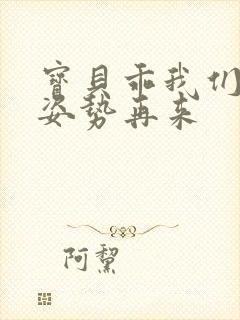 寶貝乖我们
姿势再来
阿黧